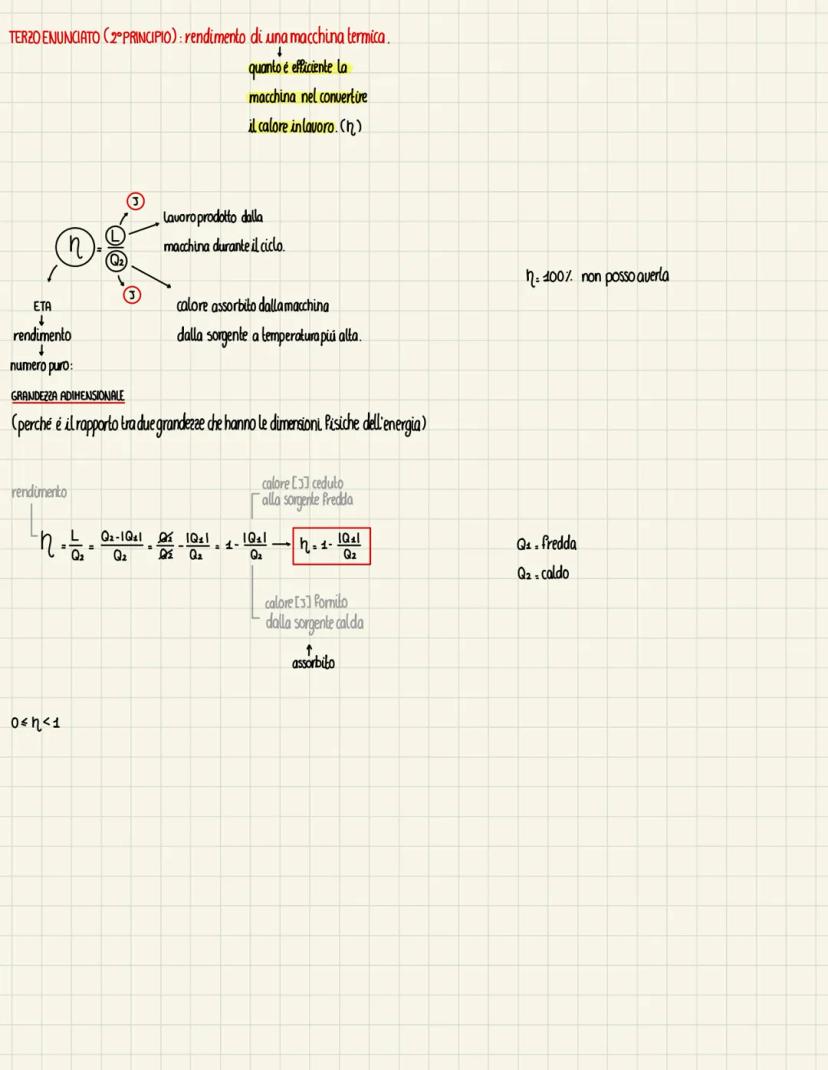 TERZO ENUNCIATO (2° PRINCIPIO): rendimento di una macchina termica.
↓
quanto é efficiente la
macchina nel convertire
il calore in lavoro. (η)
J
lavoro prodotto dalla
macchina durante il ciclo.
η = L / Q2
J
calore assorbito dalla macchina
dalla sorgente a temperatura piú alta.
η = 100% non posso averla
ETA
↓
rendimento
↓
numero puro:
GRANDEZZA ADIMENSIONALE
(perché é il rapporto tra due grandezze che hanno le dimensioni fisiche dell'energia)
rendimento
calore [J] ceduto
alla sorgente fredda
η = L/Q2 = (Q2-|Q1|)/Q2 = Q2/Q2 - |Q1|/Q2 = 1 - |Q1|/Q2 → η = 1 - |Q1|/Q2
Q1 = fredda
Q2 = caldo
calore [J] fornito
dalla sorgente calda
↑
assorbito
0 ≤ η < 1